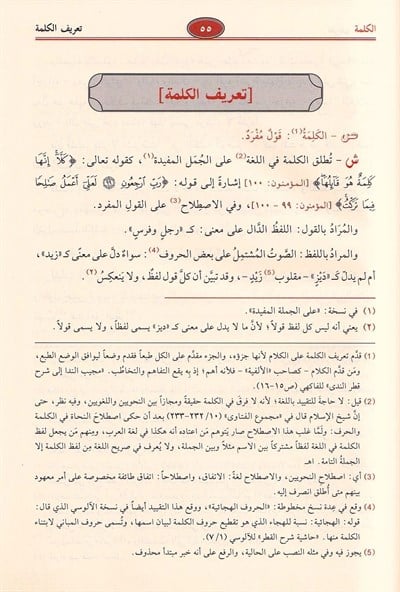 الكلمة
٥٥
تعريف الكلمة
[تعريف الكلمة]
ص - الكَلِمَةُ(1): قَوْلٌ مُفْرَدٌ.
ش - تُطلق الكلمة في اللغة(2) على الجُمَل المفيدة(١)، كقوله تعالى: ﴿كَلَّا إِنَّهَا
كَلِمَةٌ هُوَ قَائِلُهَا﴾ [المؤمنون: ١٠٠] إشارةً إلى قوله: ﴿رَبِّ ارْجِعُونِ ۝٩٩ لَعَلِّي أَعْمَلُ صَالِحًا
فِيمَا تَرَكْتُ﴾ [المؤمنون: ٩٩ - ١٠٠]، وفي الاصطِلاح(3) على القول المفرد.
والمُرَادُ بالقول: اللفظُ الدَّال على معنى: كـ «رجلٍ وفرسٍ».
والمراد باللفظ: الصَّوتُ المُشتمِلُ على بعض الحروف(4): سواءٌ دلَّ على معنًى كـ «زيد»،
أم لم يدلَّ كـ «دَيْزٍ» - مقلوب(5) زَيْدٍ -، وقد تبيَّن أن كلَّ قول لفظٌ، ولا يَنعكِسُ(٢).
(١) في نسخة: «على الجملة المفيدة».
(٢) يعني أنه ليس كل لفظ قولاً؛ لأنَّ ما لا يدل على معنى كـ «ديز» يسمى لفظاً، ولا يسمى قولاً.
(1) قدَّم تعريف الكلمة على الكلام لأنها جزؤه، والجزء مقدَّم على الكل طبعاً فقدم وضعاً ليوافق الوضع الطبع،
ومَن قدَّم الكلام - كصاحب «الألفية» - فلأنه أهم؛ إذ به يقع التفاهم والتخاطُب. «مجيب الندا إلى شرح
قطر الندى» للفاكهي (ص١٥-١٦).
(2) قيل: لا حاجةَ للتقييد باللغة؛ لأنه لا فرقَ في الكلمة حقيقةً ومجازاً بين النحويين واللغويين، وفيه نظر، حتى
إنَّ شيخ الإسلام قال في «مجموع الفتاوى» (١٠/ ٢٣٢-٢٣٣) بعد أن حكى اصطلاحَ النحاة في الكلمة
والحرف: ولَمَّا غلب هذا الاصطلاح صار يَتوهَّم مَن اعتاده أنه هكذا في لغة العرب، ومِنهم مَن يجعل لفظ
الكلمة في اللغة لفظاً مشتركاً بين الاسم مثلاً وبين الجملة، ولا يُعرف في صريح اللغة مِن لفظ الكلمة إلا
الجملة التامة. اهـ
(3) أي: اصطلاح النحويين، والاصطلاح لغةً: الاتفاق، واصطلاحاً: اتفاق طائفة مخصوصة على أمر معهود
بينهم متى أُطلق انصرف إليه.
(4) وقع في عدة نسخ مخطوطة: «الحروف الهجائية»، ووقع هذا التقييد أيضاً في نسخة الآلوسي الذي قال:
قوله: الهجائية: نسبة للهجاء الذي هو تقطيع حروف الكلمة لبيان اسمها، وتُسمى حروف المباني لابتناء
الكلمة منها. «حاشية شرح القطر» للآلوسي (٧/١)
(5) يجوز فيه وفي مثله النصب على الحالية، والرفع على أنه خبر مبتدأ محذوف.